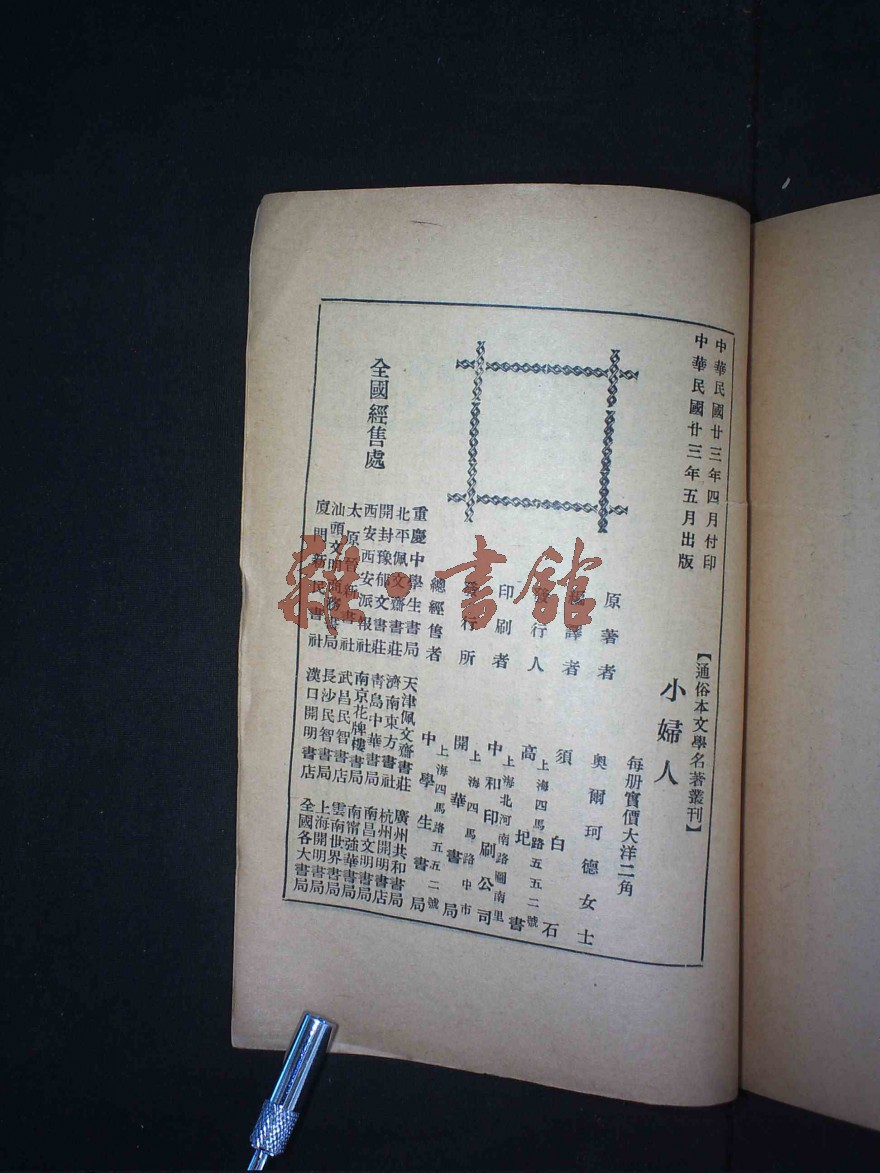 中華民國廿三年四月付印
中華民國廿三年五月出版
【通俗本文學名著叢刊】
小婦人
每册實價大洋二角
原著者 奧爾珂德女士
譯者 須白石
行人 高圯書
上海四馬路五五二號
印刷者 中和印刷公司
上海北河南路圖南里
行所 開華書局
上海四馬路中市
總經售者 中學生書局
上海四馬路五五二號
全國經售處
重慶中學生書局
北平佩文齋書莊
開封豫郁文書莊
西安西安派報社
太原晉新書社
汕頭文明商務書局
廈門新民書社
天津佩文齋書莊
濟南東方書社
青島中華書局
南京花牌樓書局
武昌民智書店
長沙民智書局
漢口開明書店
廣州共和書局
杭州開明書店
南昌文明書局
南甯強華書局
雲南世界書局
上海開明書局
全國各大書局
雜·書館